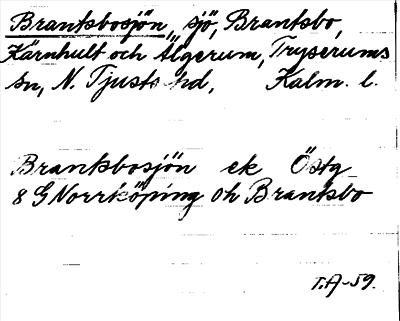 Branksbosjön, sjö, Branksbo,
Kärnhult och Älgerum, Tryserums
sn, N. Tjusts hd, Kalm. l.
Branksbosjön ek Östg
8 G Norrköping Oh Branksbo
T.A-59.